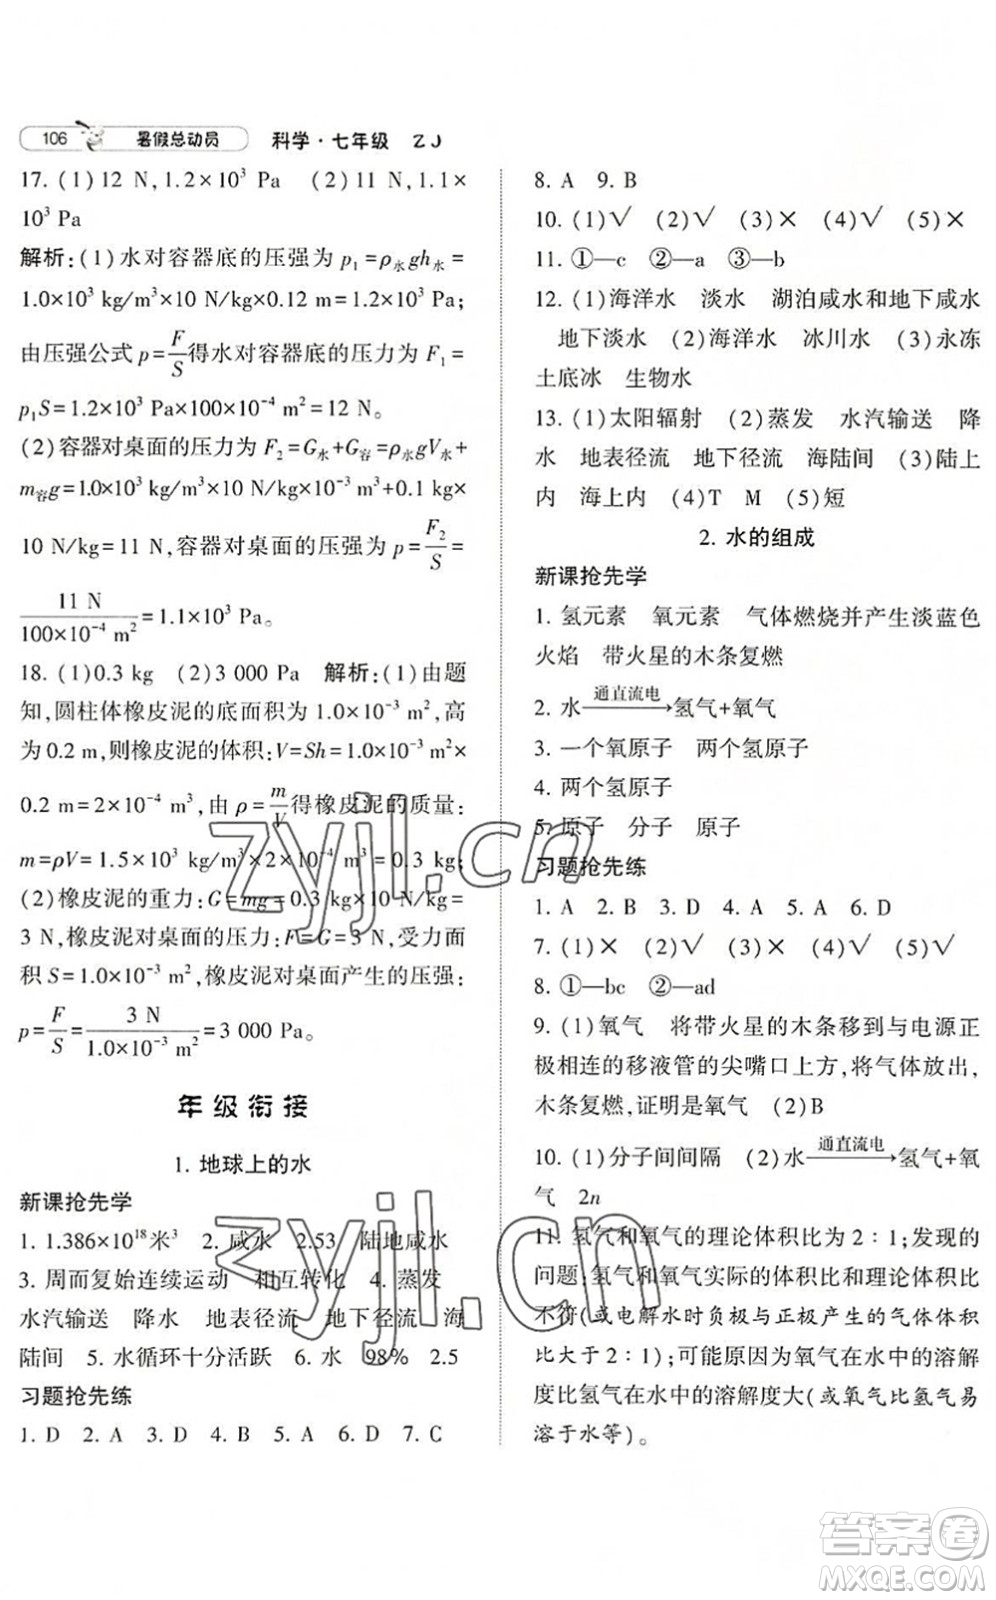 106 暑假总动员 科学·七年级 ZJ
17. (1)12 N,1.2×10³ Pa (2)11 N,1.1×
10³ Pa
解析:(1)水对容器底的压强为 p₁=ρ水gh水=
1.0×10³ kg/m³×10 N/kg×0.12 m=1.2×10³ Pa;
由压强公式 p=F/S 得水对容器底的压力为 F₁=
p₁S=1.2×10³ Pa×100×10⁻⁴ m²=12 N。
(2)容器对桌面的压力为 F₂=G水+G容=ρ水gV水+
m容g=1.0×10³ kg/m³×10 N/kg×10⁻³ m³+0.1 kg×
10 N/kg=11 N,容器对桌面的压强为 p=F₂/S=
11 N/100×10⁻⁴ m²=1.1×10³ Pa。
18. (1)0.3 kg (2)3 000 Pa 解析:(1)由题
知,圆柱体橡皮泥的底面积为 1.0×10⁻³ m²,高
为 0.2 m,则橡皮泥的体积:V=Sh=1.0×10⁻³ m²×
0.2 m=2×10⁻⁴ m³,由 ρ=m/V 得橡皮泥的质量:
m=ρV=1.5×10³ kg/m³×2×10⁻⁴ m³=0.3 kg;
(2)橡皮泥的重力:G=mg=0.3 kg×10 N/kg=
3 N,橡皮泥对桌面的压力:F=G=3 N,受力面
积 S=1.0×10⁻³ m²,橡皮泥对桌面产生的压强:
p=F/S=3 N/1.0×10⁻³ m²=3 000 Pa。
年级衔接
1. 地球上的水
新课抢先学
1. 1.386×10¹⁸米³ 2. 咸水 2.53 陆地咸水
3. 周而复始连续运动 相互转化 4. 蒸发
水汽输送 降水 地表径流 地下径流 海
陆间 5. 水循环十分活跃 6. 水 98% 2.5
习题抢先练
1. D 2. A 3. D 4. B 5. A 6. D 7. C
8. A 9. B
10. (1)√ (2)√ (3)× (4)√ (5)×
11. ①—c ②—a ③—b
12. (1)海洋水 淡水 湖泊咸水和地下咸水
地下淡水 (2)海洋水 冰川水 (3)永冻
土底冰 生物水
13. (1)太阳辐射 (2)蒸发 水汽输送 降
水 地表径流 地下径流 海陆间 (3)陆上
内 海上内 (4)T M (5)短
2. 水的组成
新课抢先学
1. 氢元素 氧元素 气体燃烧并产生淡蓝色
火焰 带火星的木条复燃
2. 水 通直流电→氢气+氧气
3. 一个氧原子 两个氢原子
4. 两个氢原子
5. 原子 分子 原子
习题抢先练
1. A 2. B 3. D 4. A 5. A 6. D
7. (1)× (2)√ (3)× (4)√ (5)√
8. ①—bc ②—ad
9. (1)氧气 将带火星的木条移到与电源正
极相连的移液管的尖嘴口上方,将气体放出,
木条复燃,证明是氧气 (2)B
10. (1)分子间间隔 (2)水 通直流电→氢气+氧
气 2n
11. 氢气和氧气的理论体积比为 2∶1;发现的
问题:氢气和氧气实际的体积比和理论体积比
不符(或电解水时负极与正极产生的气体体积
比大于 2∶1);可能原因为氧气在水中的溶解
度比氢气在水中的溶解度大(或氧气比氢气易
溶于水等)。
zyjl.cn
zyjl.cn
答案圈
MXQE.COM